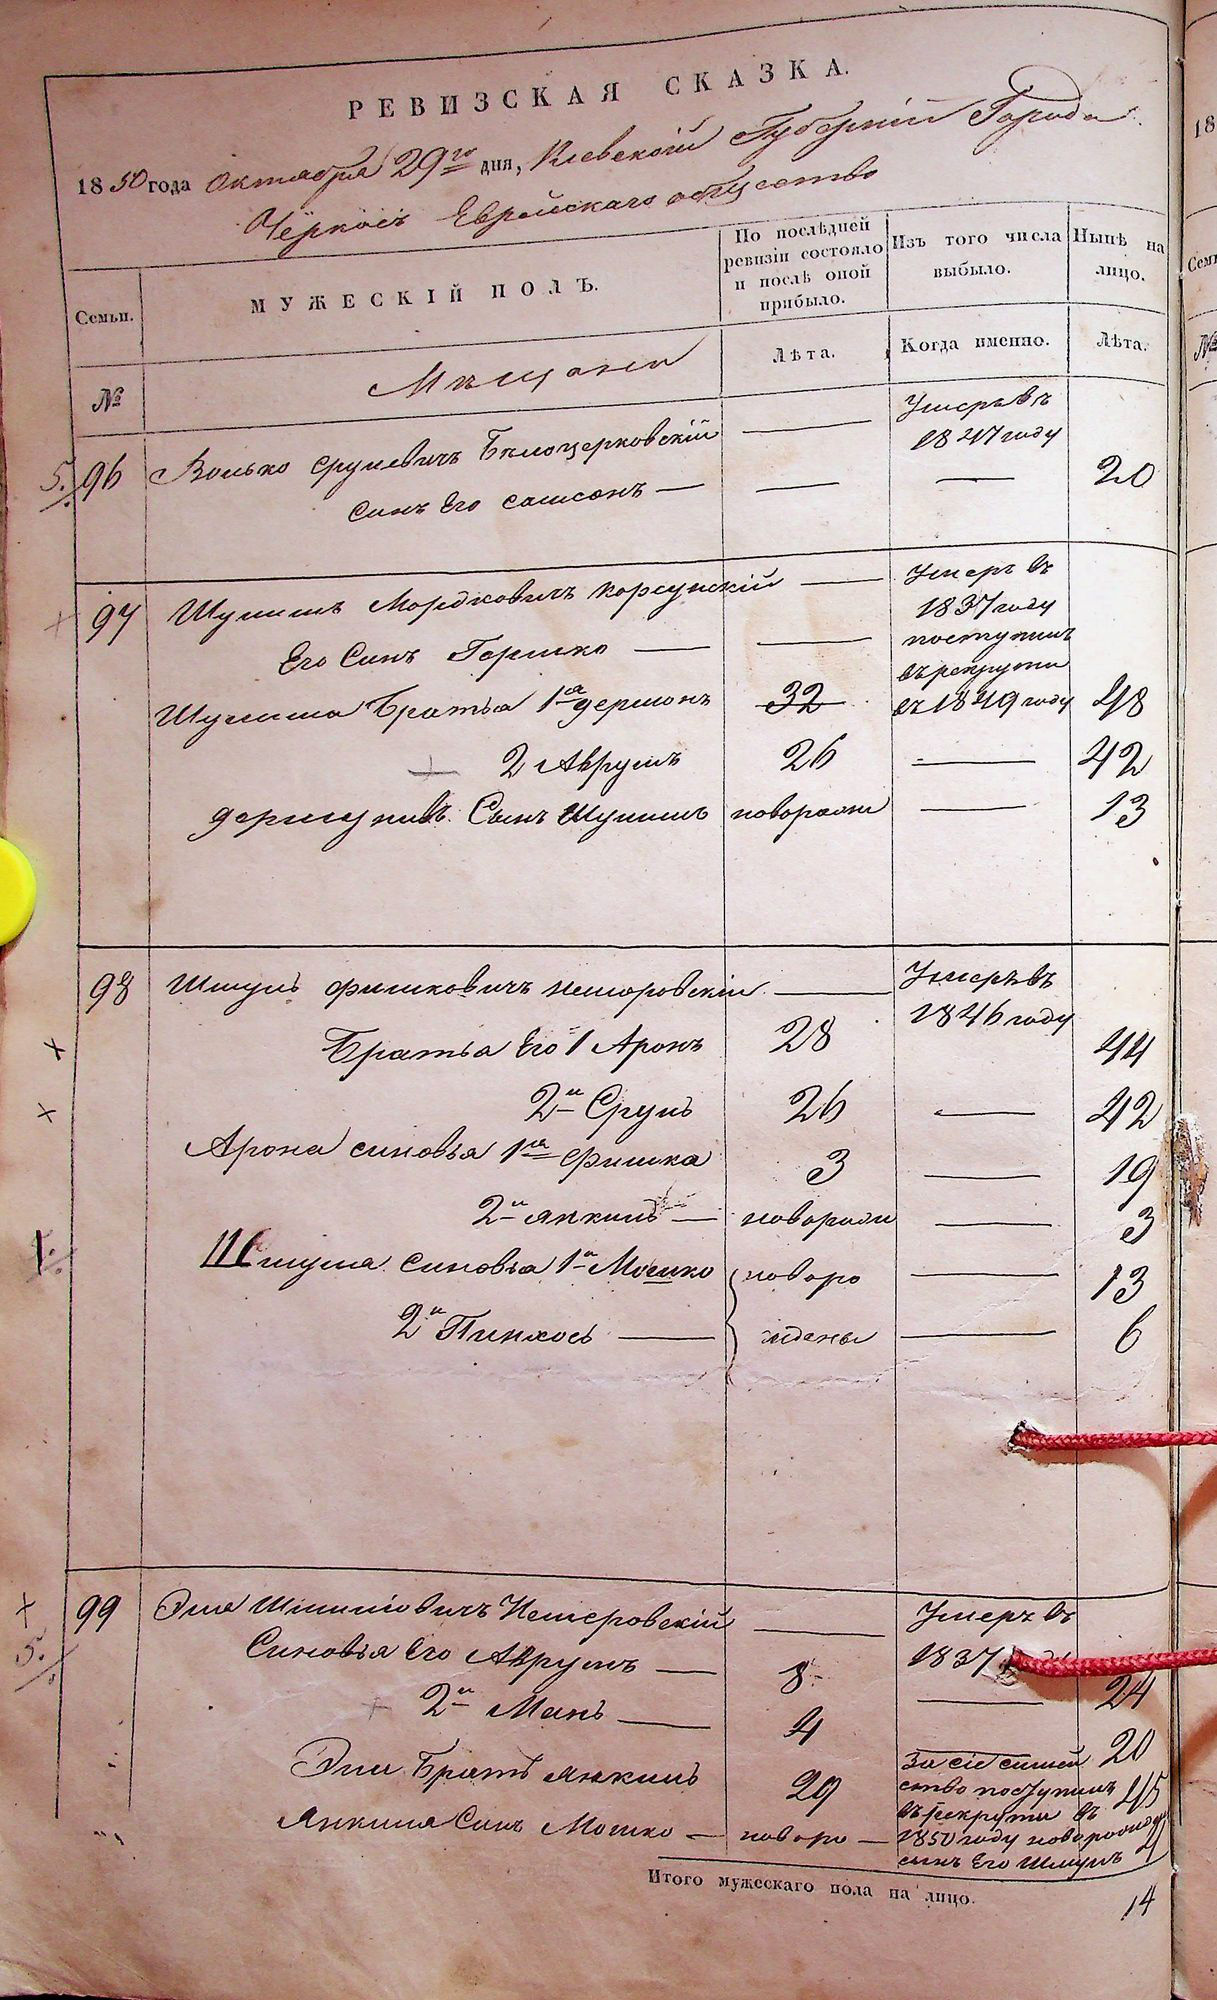 РЕВИЗСКАЯ СКАЗКА.
1850 года Октября 29го дня, Киевской Губернiи Города
Черкасъ Еврейскаго общество
Семьи.
МУЖЕСКIЙ ПОЛЪ.
По послѣдней ревизiи состояло и послѣ оной прибыло.
Изъ того числа выбыло.
Нынѣ на лицо.
№
Мѣщане
Лѣта.
Когда именно.
Лѣта.
96 Волько Срулевичъ Бѣлоцерковскiй — Умеръ въ 1847 году
Синъ Его Самсонъ — — — 20
97 Шулимъ Мордковичъ Корсунскiй — Умеръ въ 1837 году
Его Синъ Гершко — — поступилъ въ рекруты въ 1849 году
Шулима Братья 1й 32 48
2 Аврумъ 26 — 42
Сынъ Шулимъ новорожн — 13
98 Шмуль Фишковичъ — Умеръ въ 1846 году
Братья Его 1 Аронъ 28 44
2й Сруль 26 — 42
Арона синовья 1й Фишка 3 — 19
2й Янкиль — новорожн — 3
Шмуля синовья 1й Мошко новоро — 13
2й Пинхось — ждены — 6
99 Эля — Умеръ въ 1837
Синовья Его Аврумъ — 8 — 24
2й Манъ — 4 20
Эли Братъ Янкиль 29 За сiе семей 45
ство поступилъ
въ рекруты въ
Янкиля Синъ Мошко — новоро — 1850 году 4
сынъ Его Шмуль
Итого мужескаго пола на лицо. 14